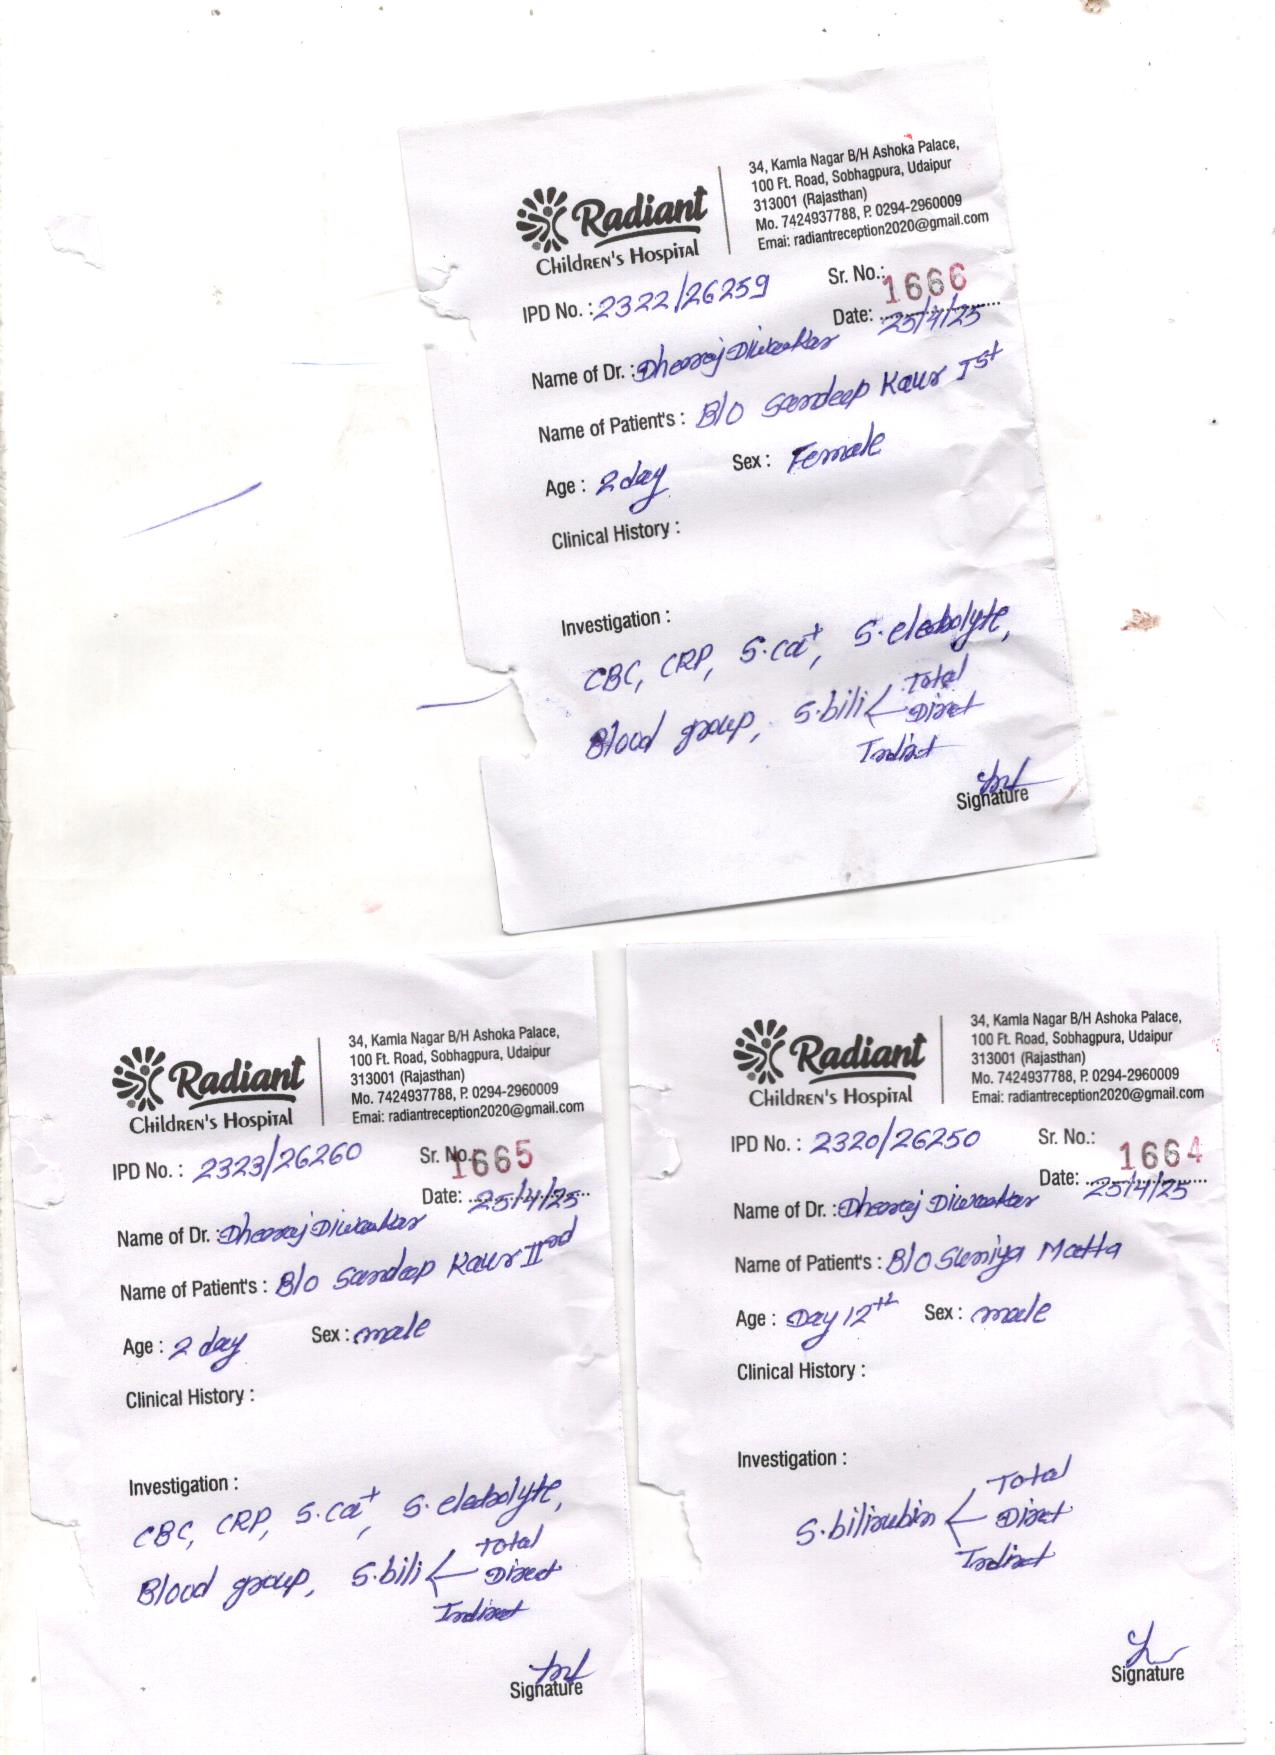 Radiant
Children's Hospital
34, Kamla Nagar B/H Ashoka Palace,
100 Ft. Road, Sobhagpura, Udaipur
313001 (Rajasthan)
Mo. 7424937788, P. 0294-2960009
Emai: radiantreception2020@gmail.com
IPD No. : 2322/26259 Sr. No.: 1666
Date: 25/4/25
Name of Dr. : Dheeraj Diwakar
Name of Patient's : B/O Sandeep Kaur Ist
Age : 2 day Sex : Female
Clinical History :
Investigation :
CBC, CRP, S.ca+, S.electrolyte,
Blood group, S.bili < Total
Direct
Indirect
Signature
Radiant
Children's Hospital
34, Kamla Nagar B/H Ashoka Palace,
100 Ft. Road, Sobhagpura, Udaipur
313001 (Rajasthan)
Mo. 7424937788, P. 0294-2960009
Emai: radiantreception2020@gmail.com
IPD No. : 2323/26260 Sr. No.: 1665
Date: 25/4/25
Name of Dr. : Dheeraj Diwakar
Name of Patient's : B/O Sandeep Kaur IInd
Age : 2 day Sex : male
Clinical History :
Investigation :
CBC, CRP, S.ca+, S.electrolyte,
Blood group, S.bili < Total
Direct
Indirect
Signature
Radiant
Children's Hospital
34, Kamla Nagar B/H Ashoka Palace,
100 Ft. Road, Sobhagpura, Udaipur
313001 (Rajasthan)
Mo. 7424937788, P. 0294-2960009
Emai: radiantreception2020@gmail.com
IPD No. : 2320/26250 Sr. No.: 1664
Date: 25/4/25
Name of Dr. : Dheeraj Diwakar
Name of Patient's : B/O Suniya Matta
Age : Day 12th Sex : male
Clinical History :
Investigation :
S.bilirubin < Total
Direct
Indirect
Signature